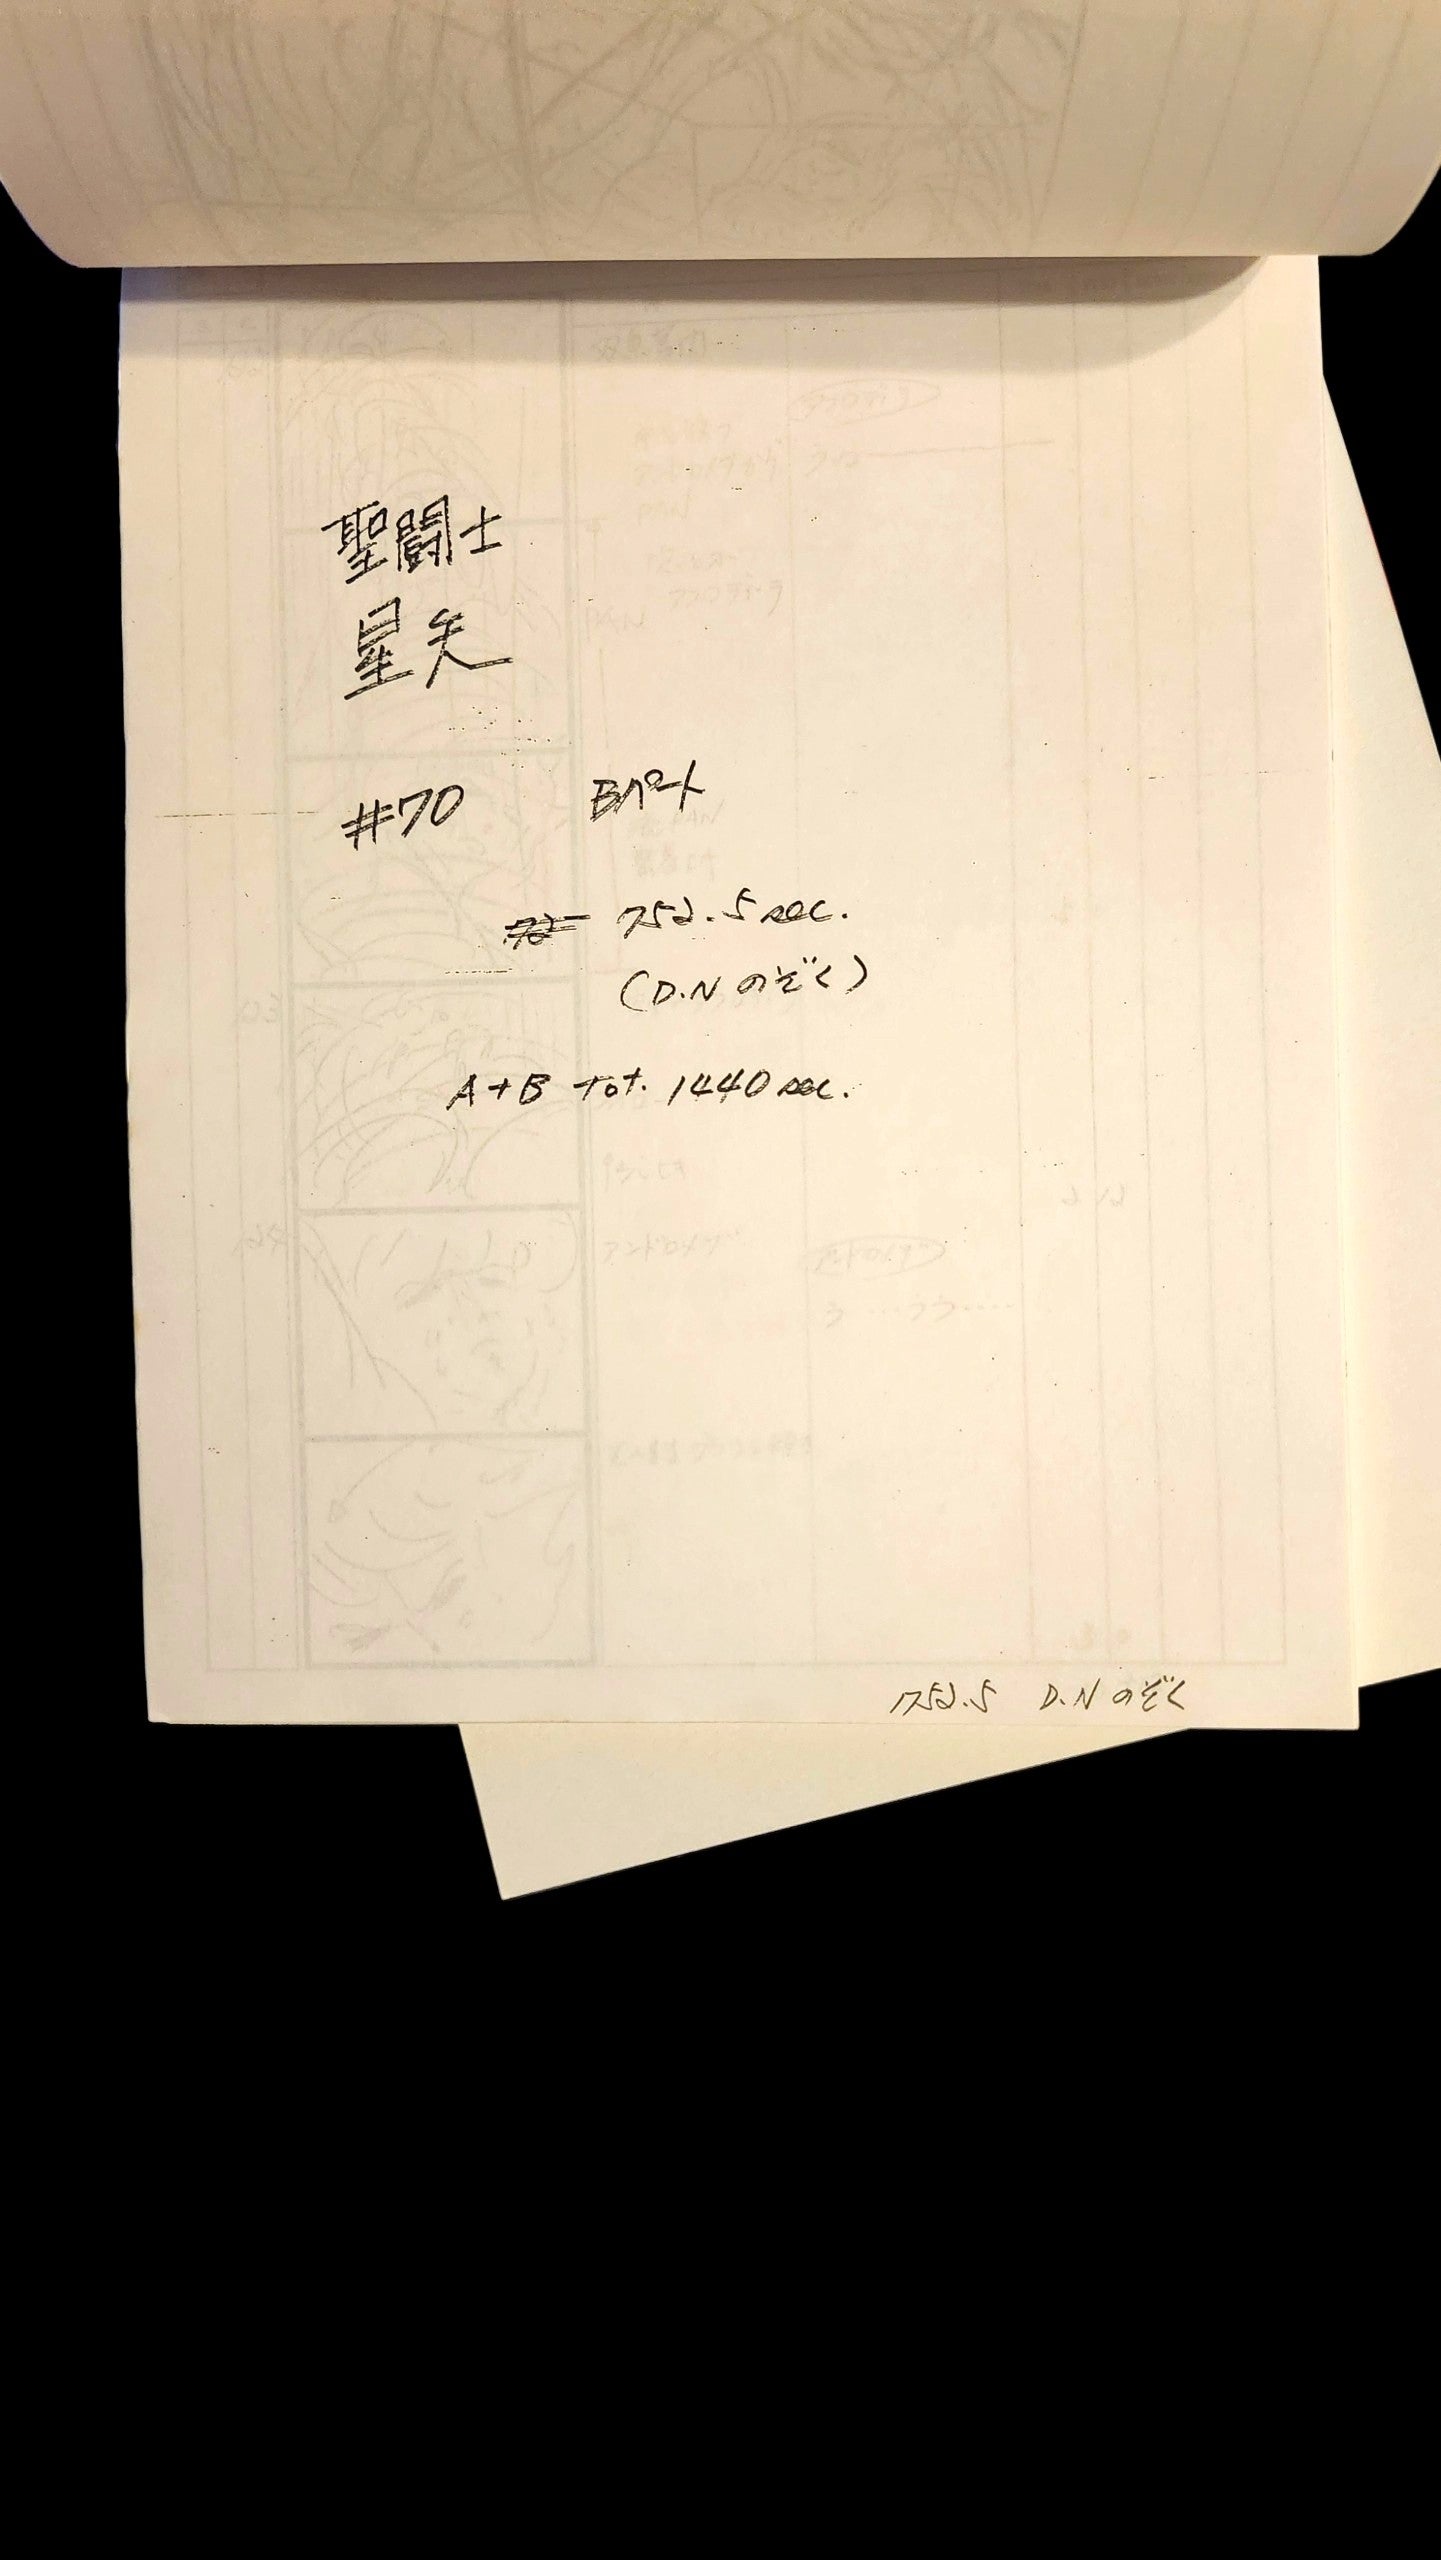 聖闘士
星矢
#70 Bパート
752.5 sec.
(D.N のぞく)
A+B tot. 1440 sec.
752.5 D.N のぞく